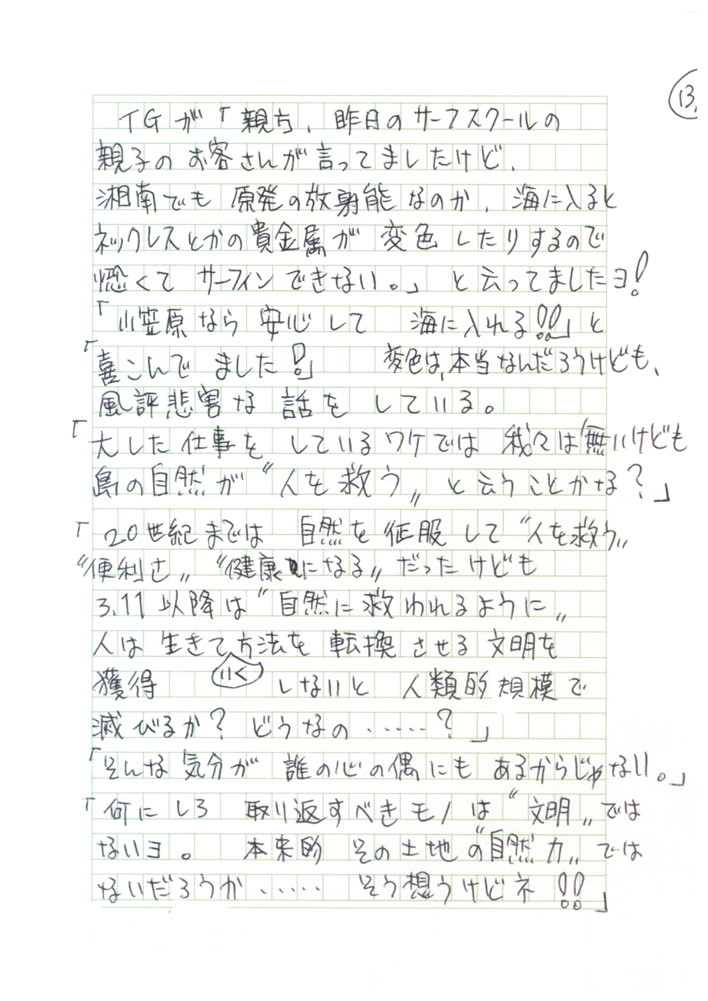 13.
TGが「親方、昨日のサーフスクールの
親子のお客さんが言ってましたけど、
湘南でも原発の放射能なのか、海に入ると
ネックレスとかの貴金属が変色したりするので
恐くてサーフィンできない。」と云ってましたヨ!
「小笠原なら安心して 海に入れる!!」と
「喜こんでました!」 変色は、本当なんだろうけども、
風評悲害な話をしている。
「大した仕事をしているワケでは我々は無いけども
島の自然が〝人を救う〟と云うことかな?」
「20世紀までは 自然を征服して〝人を救う〟
〝便利さ〟〝健康になる〟だったけども
3.11以降は〝自然に救われるように〟
人は生きて いく 方法を転換させる文明を
獲得 しないと 人類的規模で
滅びるか?どうなの‥‥‥?」
「そんな気分が 誰の心の偶にもあるからじゃない。」
「何にしろ 取り返すべきモノは〝文明〟では
ないヨ。 本来的その土地の〝自然力〟では
ないだろうか‥‥‥ そう想うけどネ!!」